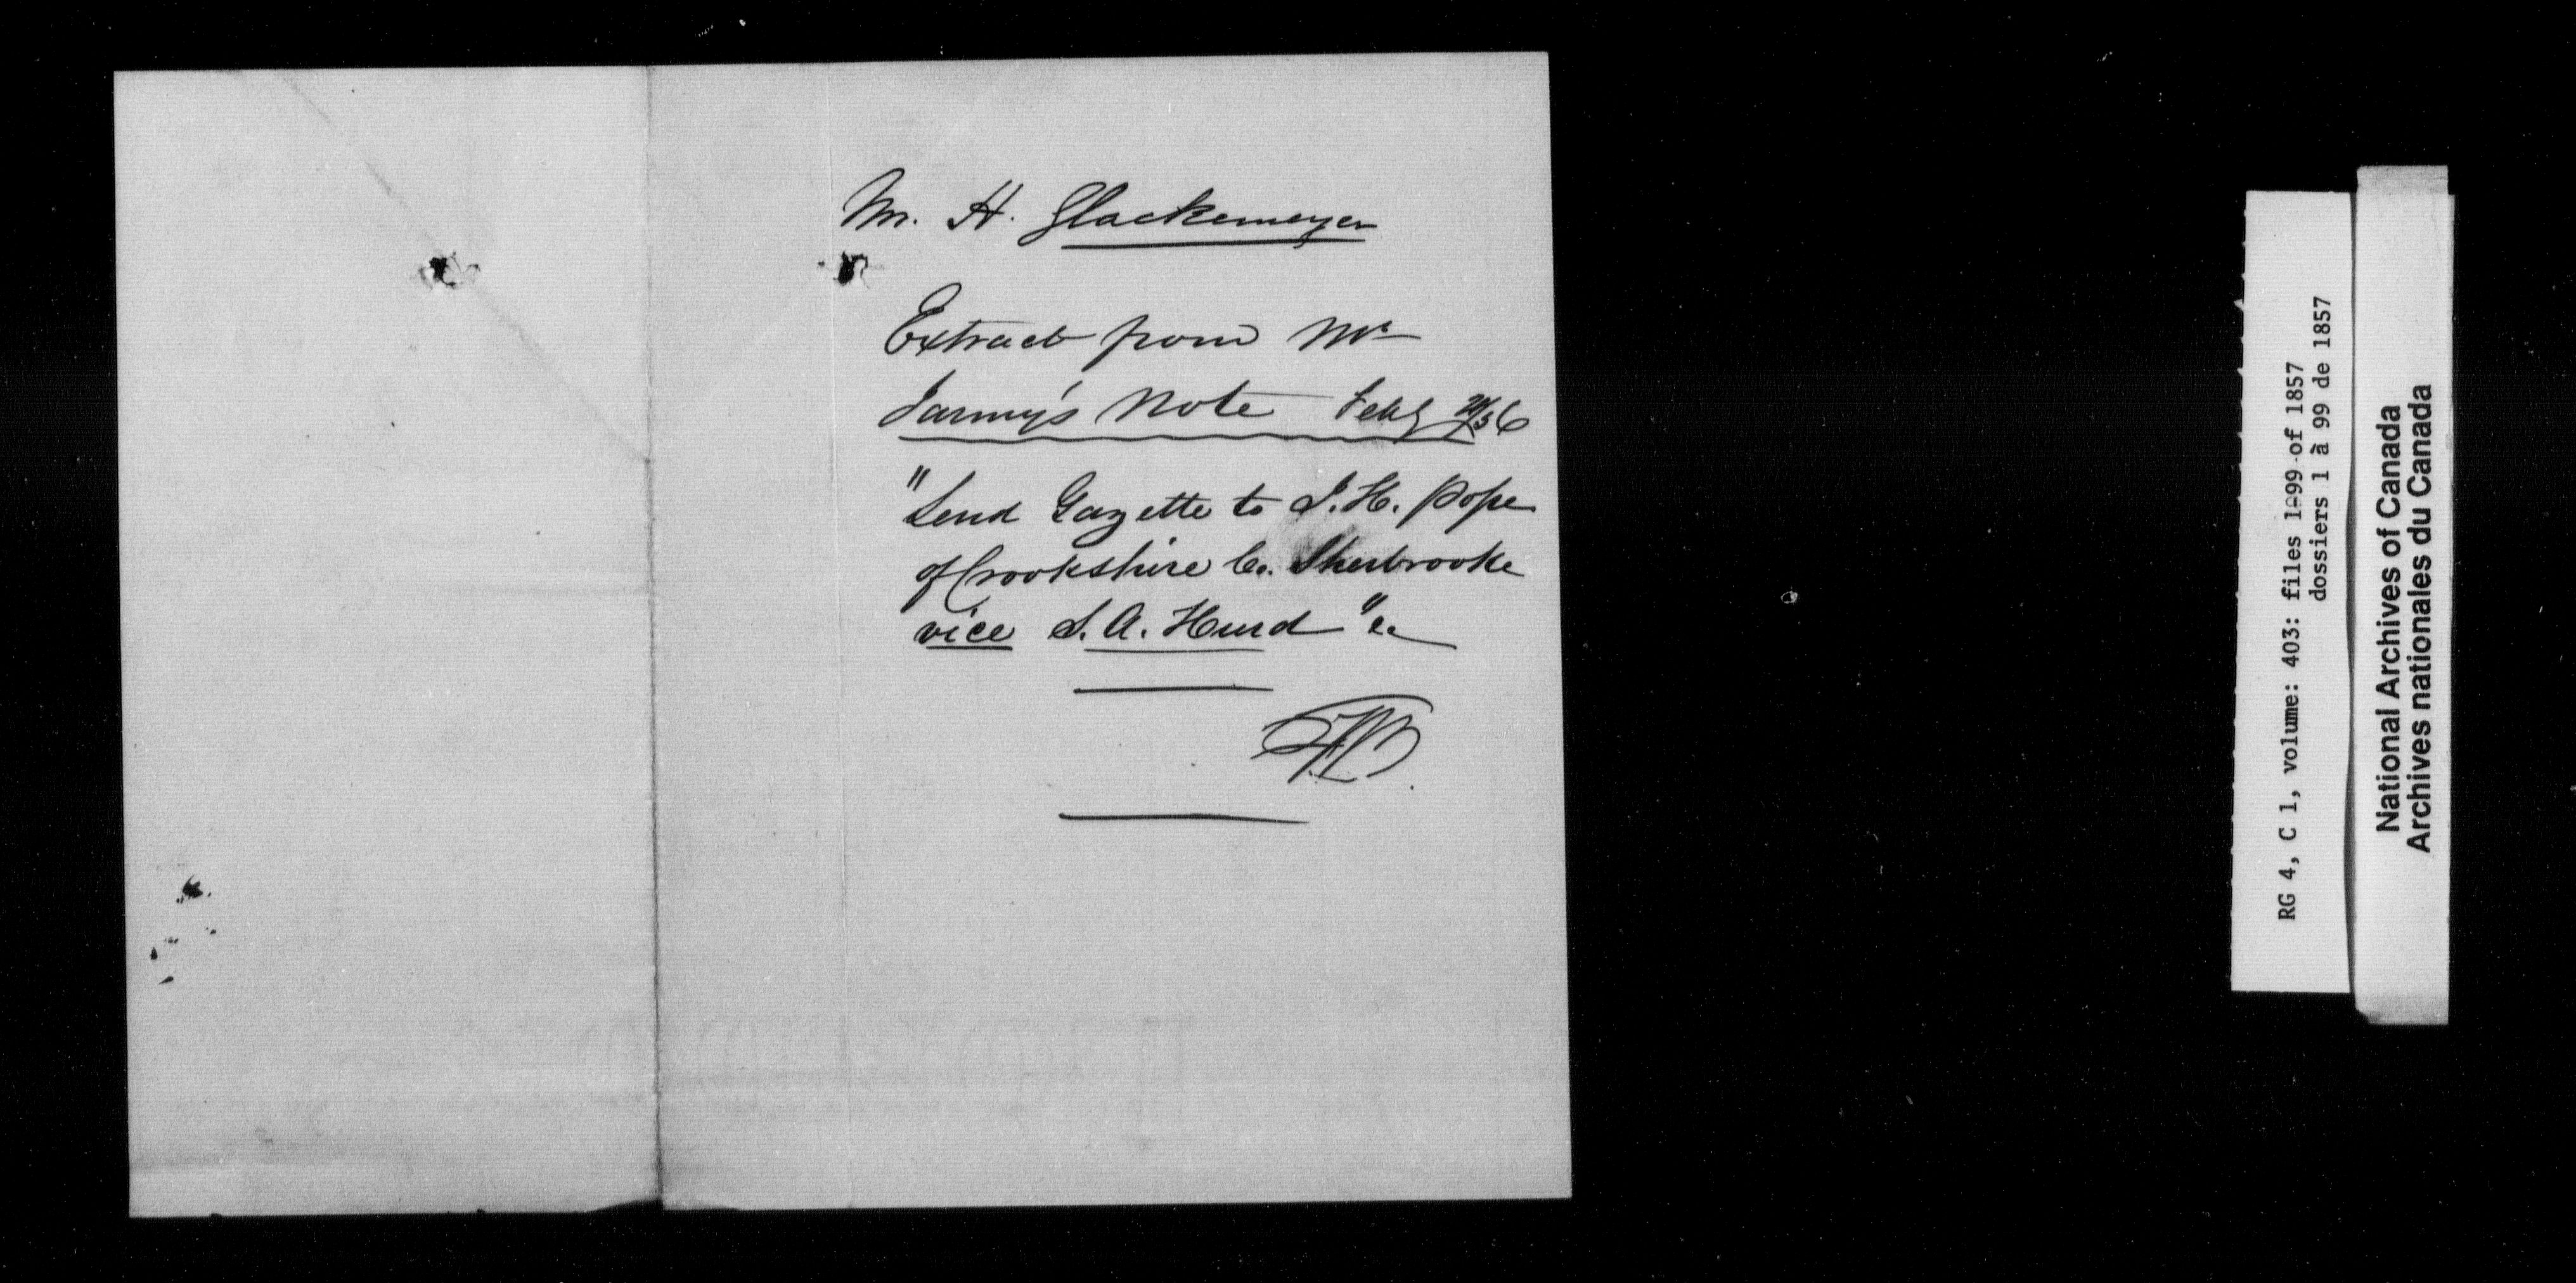 Mr. H. Glackemeyer
Extract from Mr
Note Feby /56
"Send Gazette to J. H. Pope
of Crookshire Co. Sherbrooke
vice S. A. Hurd" &c
RG 4, C 1, volume: 403: files 1-99 of 1857
dossiers 1 à 99 de 1857
National Archives of Canada
Archives nationales du Canada